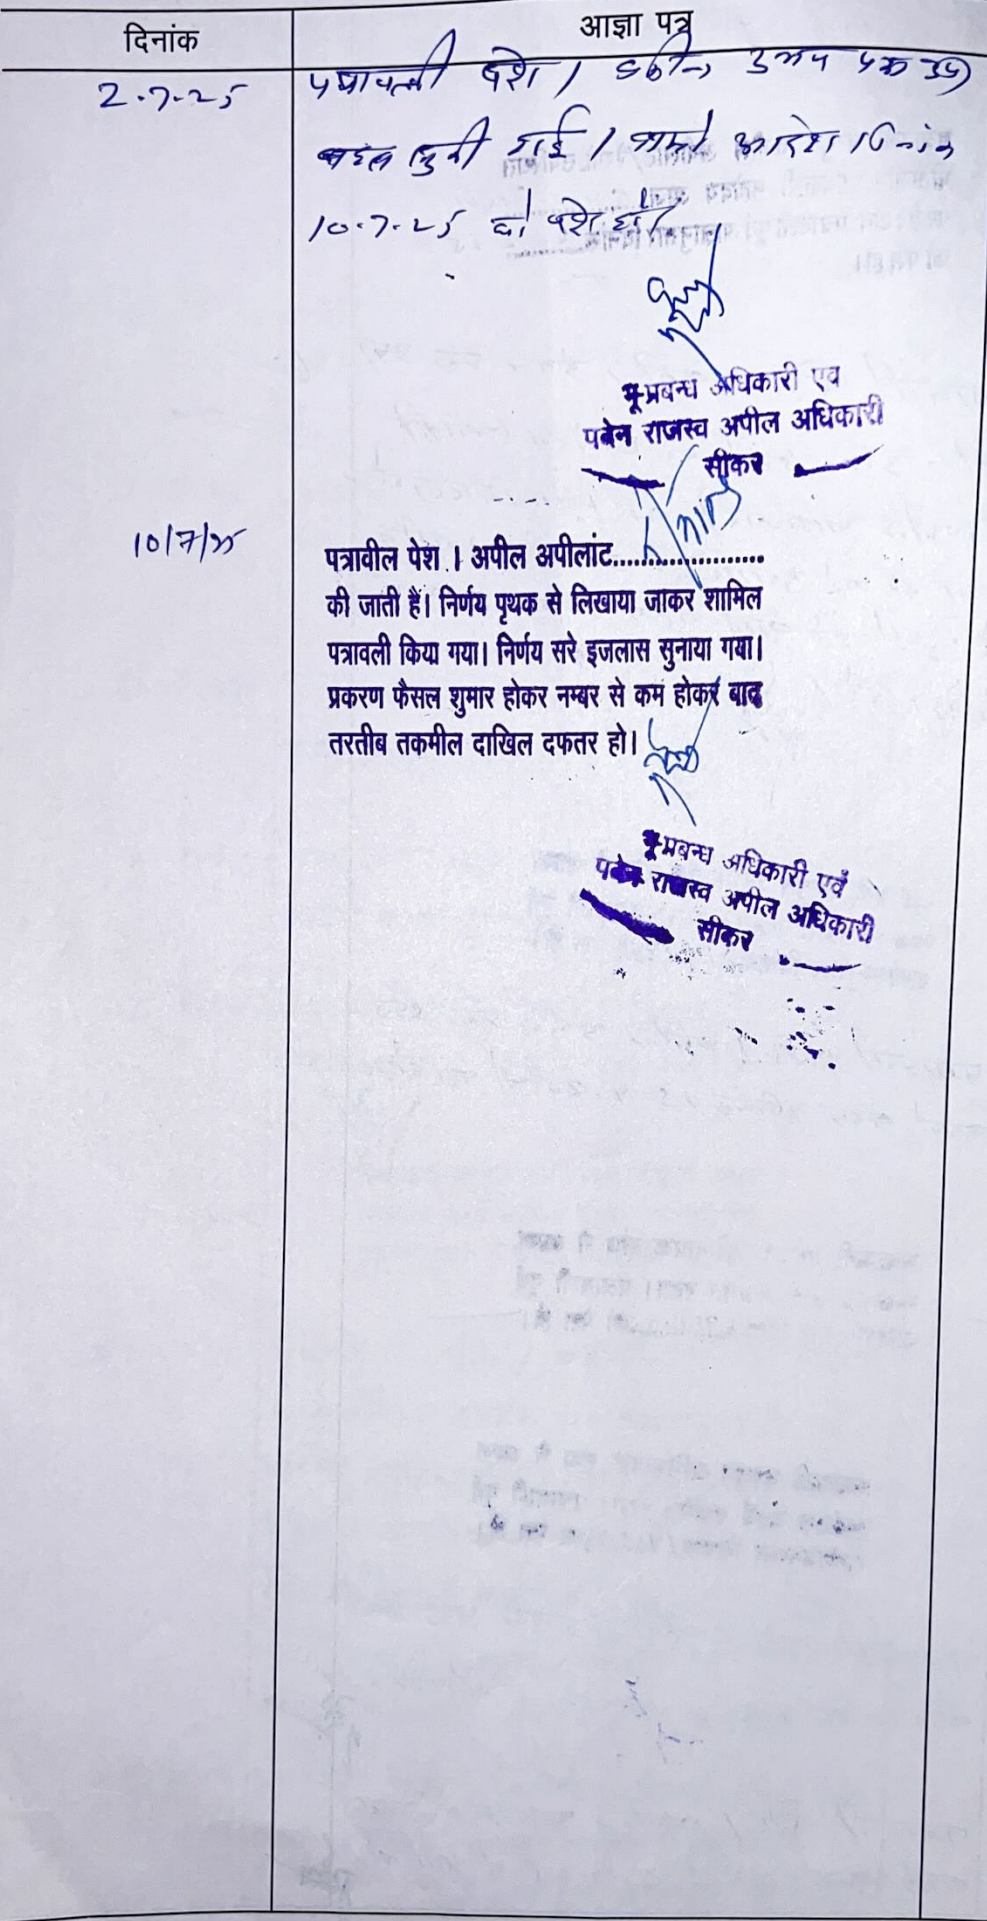 दिनांक
आज्ञा पत्र
2.7.25
पत्रावली पेश। वकील उभय पक्ष उप०
बहस सुनी गई। वास्ते आदेश दिनांक
10.7.25 को पेश हो।
भू-प्रबन्ध अधिकारी एवं
पदेन राजस्व अपील अधिकारी
सीकर
10/7/25
पत्रावील पेश । अपील अपीलांट.....................
की जाती हैं। निर्णय पृथक से लिखाया जाकर शामिल
पत्रावली किया गया। निर्णय सरे इजलास सुनाया गया।
प्रकरण फैसल शुमार होकर नम्बर से कम होकर बाद
तरतीब तकमील दाखिल दफतर हो।
भू-प्रबन्ध अधिकारी एवं
पदेन राजस्व अपील अधिकारी
सीकर